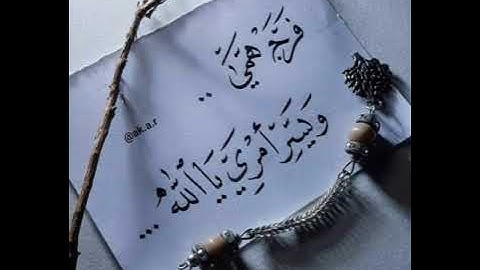 فَرِّجْ هَمِّي ..
وَيَسِّرْ أَمْرِي يَا اللَّه ...
@ak.a.r